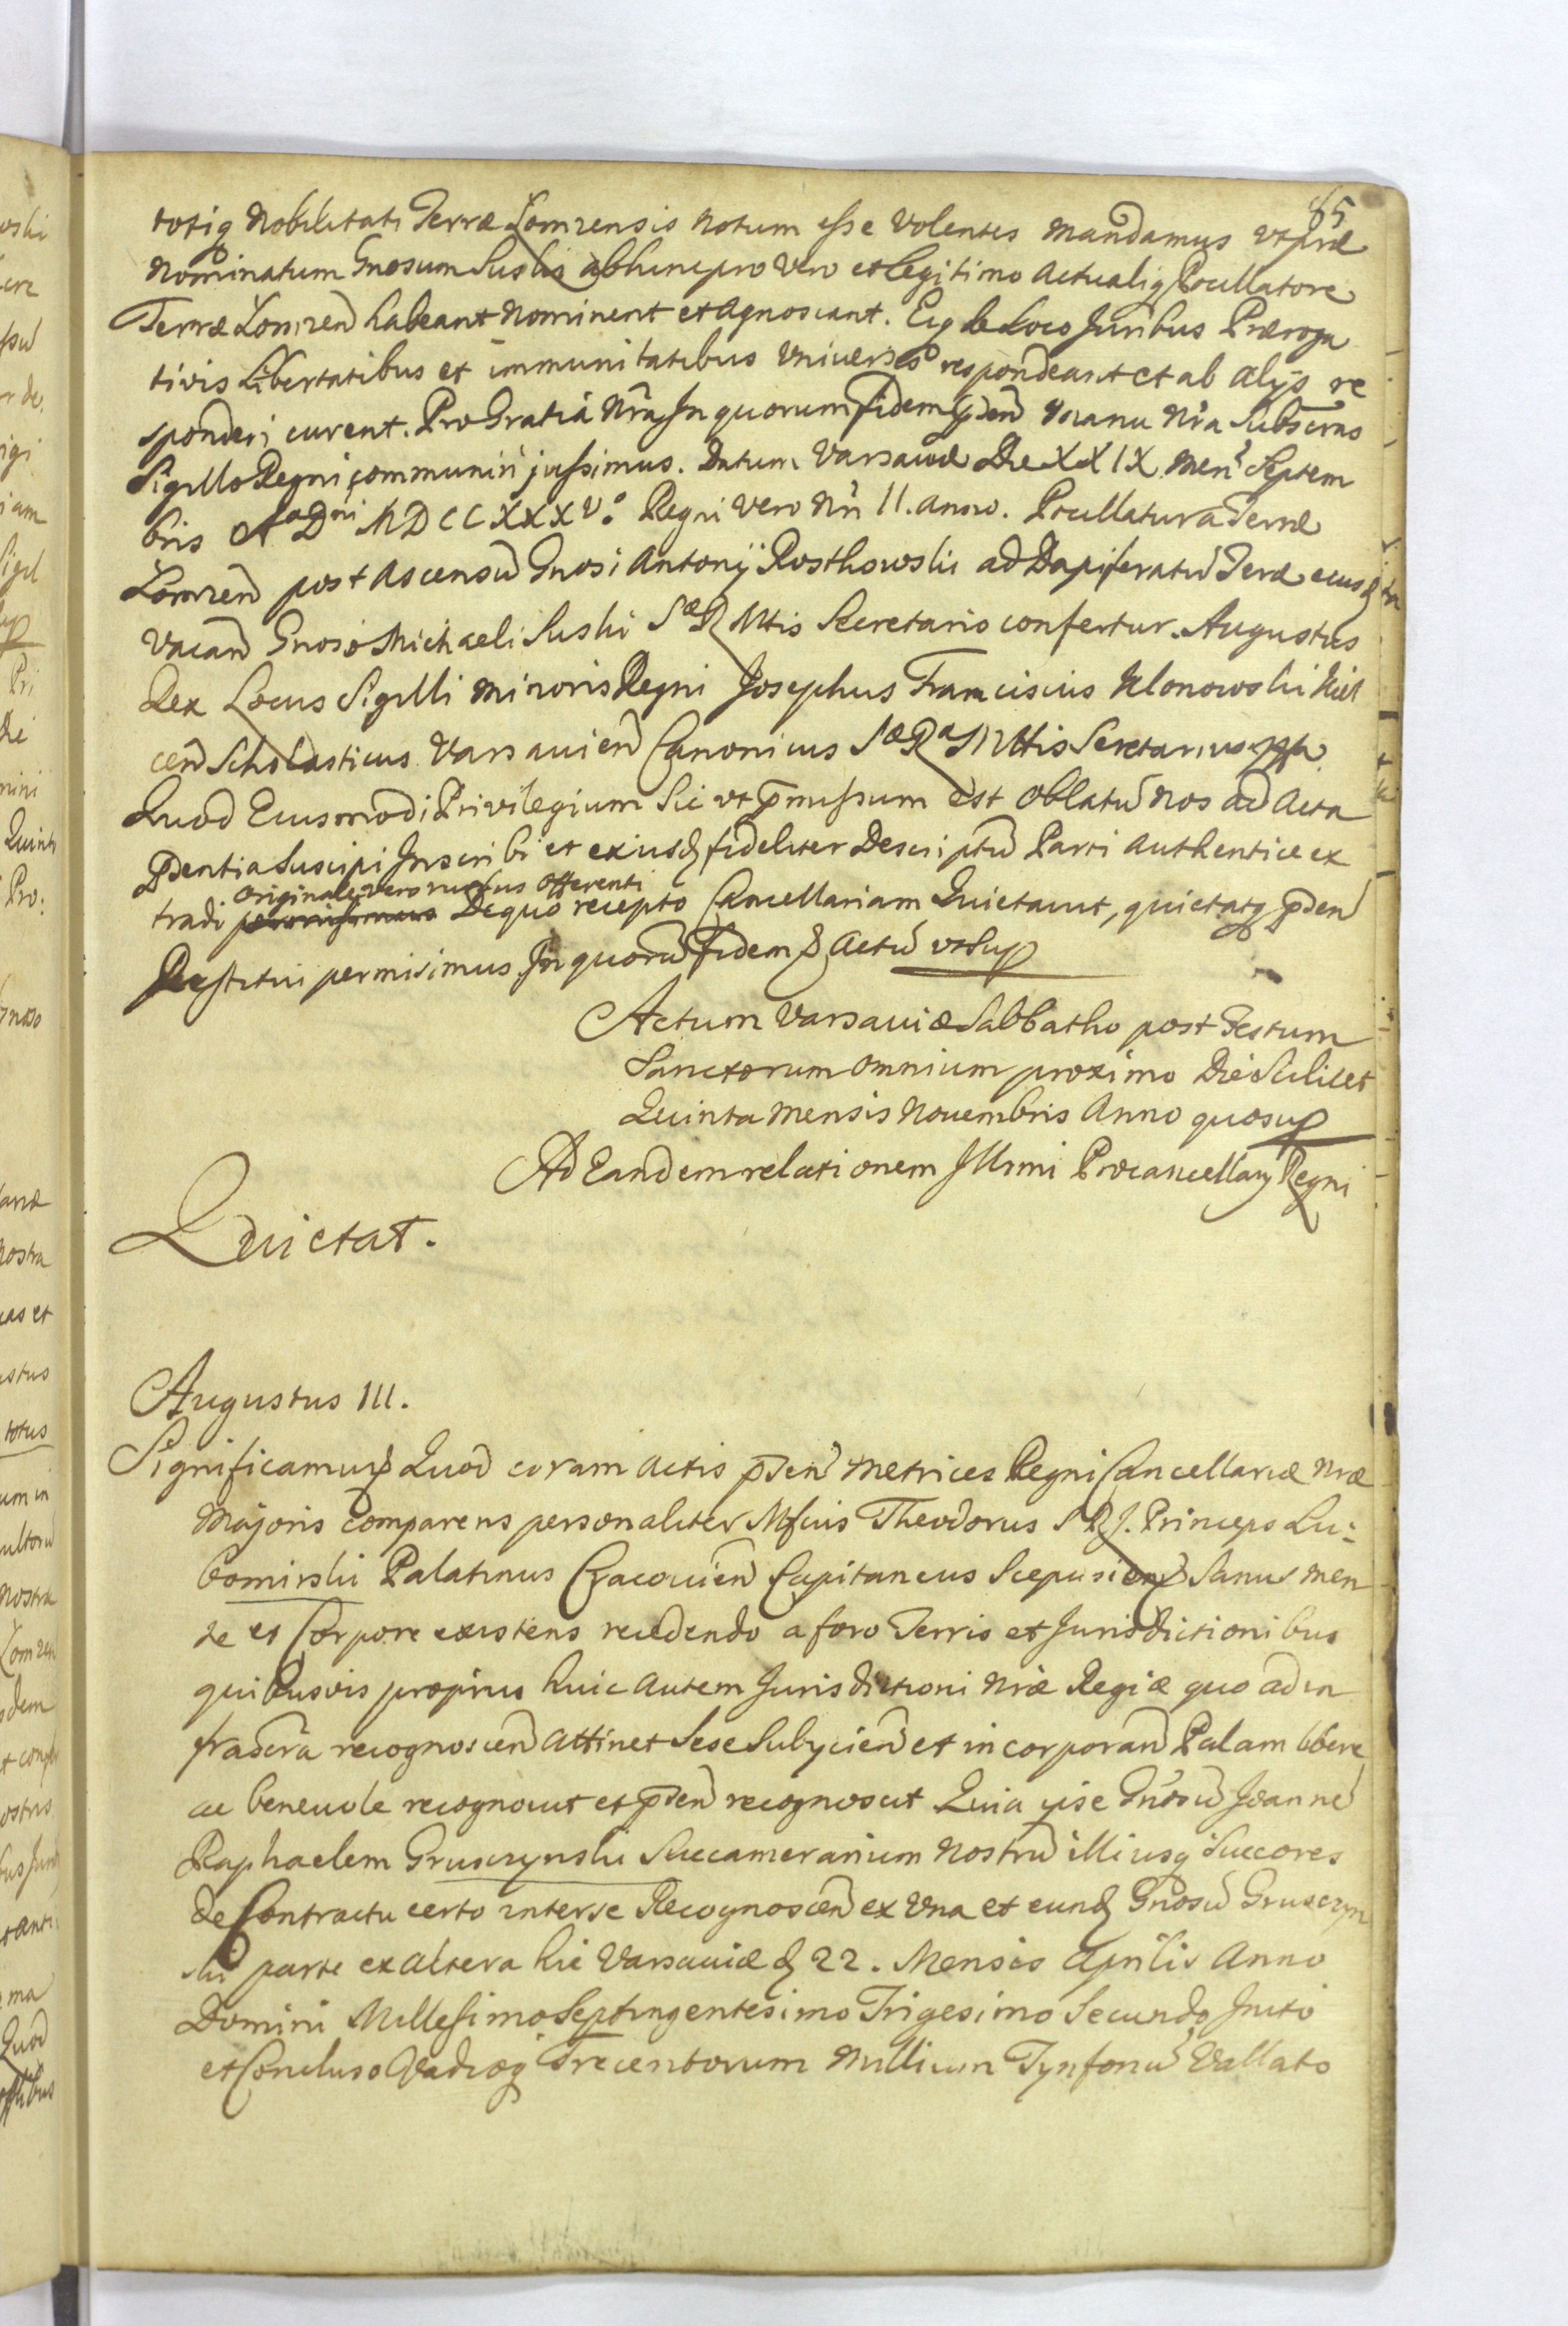 65
totiq Nobilitati Terræ Lomzensis Notum esse Volentes Mandamus Vt præ
Nominatum Gnosum Suski abhinc pro Vero et Legitimo Actualiq Pocillatore
Terræ Lomzen̄ habeant Nominent et Agnoscant. Eiq de Loco Juribus Præroga
tivis Libertatibus et immunitatibus Vniversis respondeant et ab alijs re
sponderi curent. Pro Gratia Nrã In quorum fidem p̄sen̄ Manu Nrã Subscras
Sigillo Regni communiri jussimus. Datum Varsaviæ Die XXIX Mens̄ Septem
bris Ao Dni MDCCXXXVo Regni Vero Nri II. anno. Pocillatura Terræ
Lomzen̄ post Ascensū Gnosi Antonij Rostkowski ad Dapiferatū Terræ ejusd
Vacan̄ Gnoso Michaeli Suski Sæ R Mtis Secretario confertur. Augustus
Rex Locus Sigilli Minoris Regni Josephus Franciscus Klonowski Kiel
cen̄ Scholasticus Varsavien̄ Canonicus Sæ Ra Mttis Secretarius
Quod Eiusmodi Privilegium Sic vt p̄missum est oblatū Nos ad Acta
P̄sentia Suscipi Inscribi et exiusd fideliter Descriptū Parti Authentice ex
originale vero rursus Offerenti
tradi De quo recepto Cancellariam Quietavit, quietatq p̄sen̄
Restitui permisimus. In quorū fidem & Actū vt Sup
Actum Varsaviæ Sabbatho post Festum
Sanctorum omnium proximo Die Scilicet
Quinta Mensis Novembris Anno quo sup
Ad Eandem relationem Illrmi Procancellarij Regni
Quietat.
Augustus III.
Significamus & Quod coram Actis p̄sen̄ Metrices Regni Cancellariæ Nræ
Majoris comparens personaliter Mfcus Theodorus S R J. Princeps Lu:
bomirski Palatinus Cracovien̄ Capitaneus Scepusien & Sanus Men
te et Corpore existens recedendo a foro Terris et Jurisdictionibus
quibusvis proprius huic autem Jurisdictioni Nræ Regiæ quo ad in
frascra recognoscen̄ attinet Sese Subycien̄ et incorporan̄ Palam libere
ac benevole recognovit et p̄sen̄ recognoscit Quia ipse Gnosū Joannē
Raphaelem Gruszczynski Succamerarium Nostrū illiusq Succores
de Contractu certo inter se Recognoscen̄ ex Vna et eund Gnosū Gruszczyn
ski parte ex altera hic Varsaviæ d 22. Mensis Aprilis Anno
Domini Millesimo Septingentesimo Trigesimo Secundo Inito
et Concluso Vadioq Trecentorum Millium Tynfonū Vallato